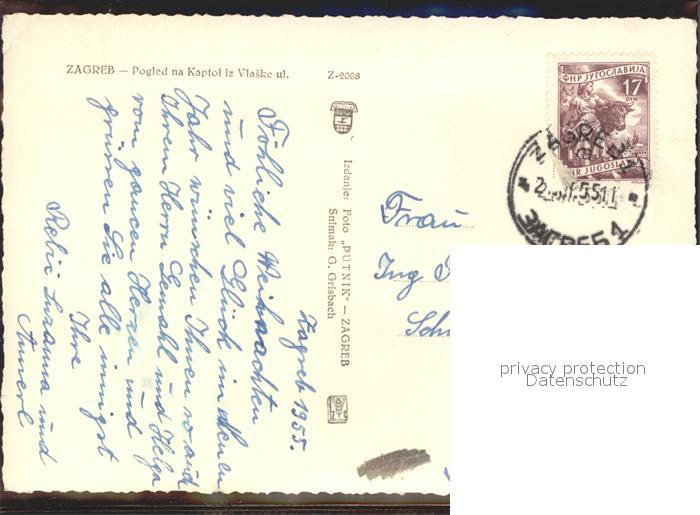 ZAGREB — Pogled na Kaptol iz Vlaške ul.
Z-2068
ФНР ЈУГОСЛАВИЈА
17
DIN
FNR JUGOSLAVIJA
ZAGREB
55 11
ЗАГРЕБ 1
Zagreb 1955.
Fröhliche Weihnachten
und viel Glück im Neuen
Jahr wünschen Ihnen so auch
Ihrem Herrn Gemahl und Helga
vom ganzen Herzen und
grüssen Sie alle innigst
Ihre
Suzanna und
Annerl
Izdanje: Foto „PUTNIK" — ZAGREB
Snimak: G. Grisbach
Frau
Ing
privacy protection
Datenschutz